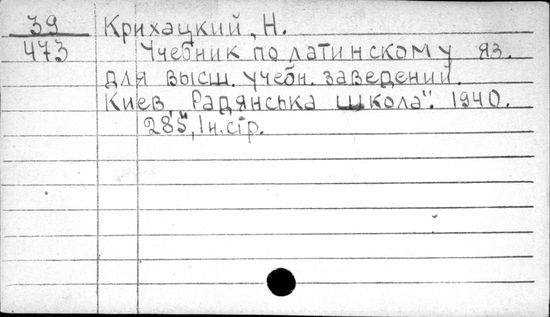 39 Крихацкий, Н.
473 Учебник по латинскому яз.
для высш. учебн. заведений.
Киев, "Радянська школа". 1940.
285, 1 н. стр.